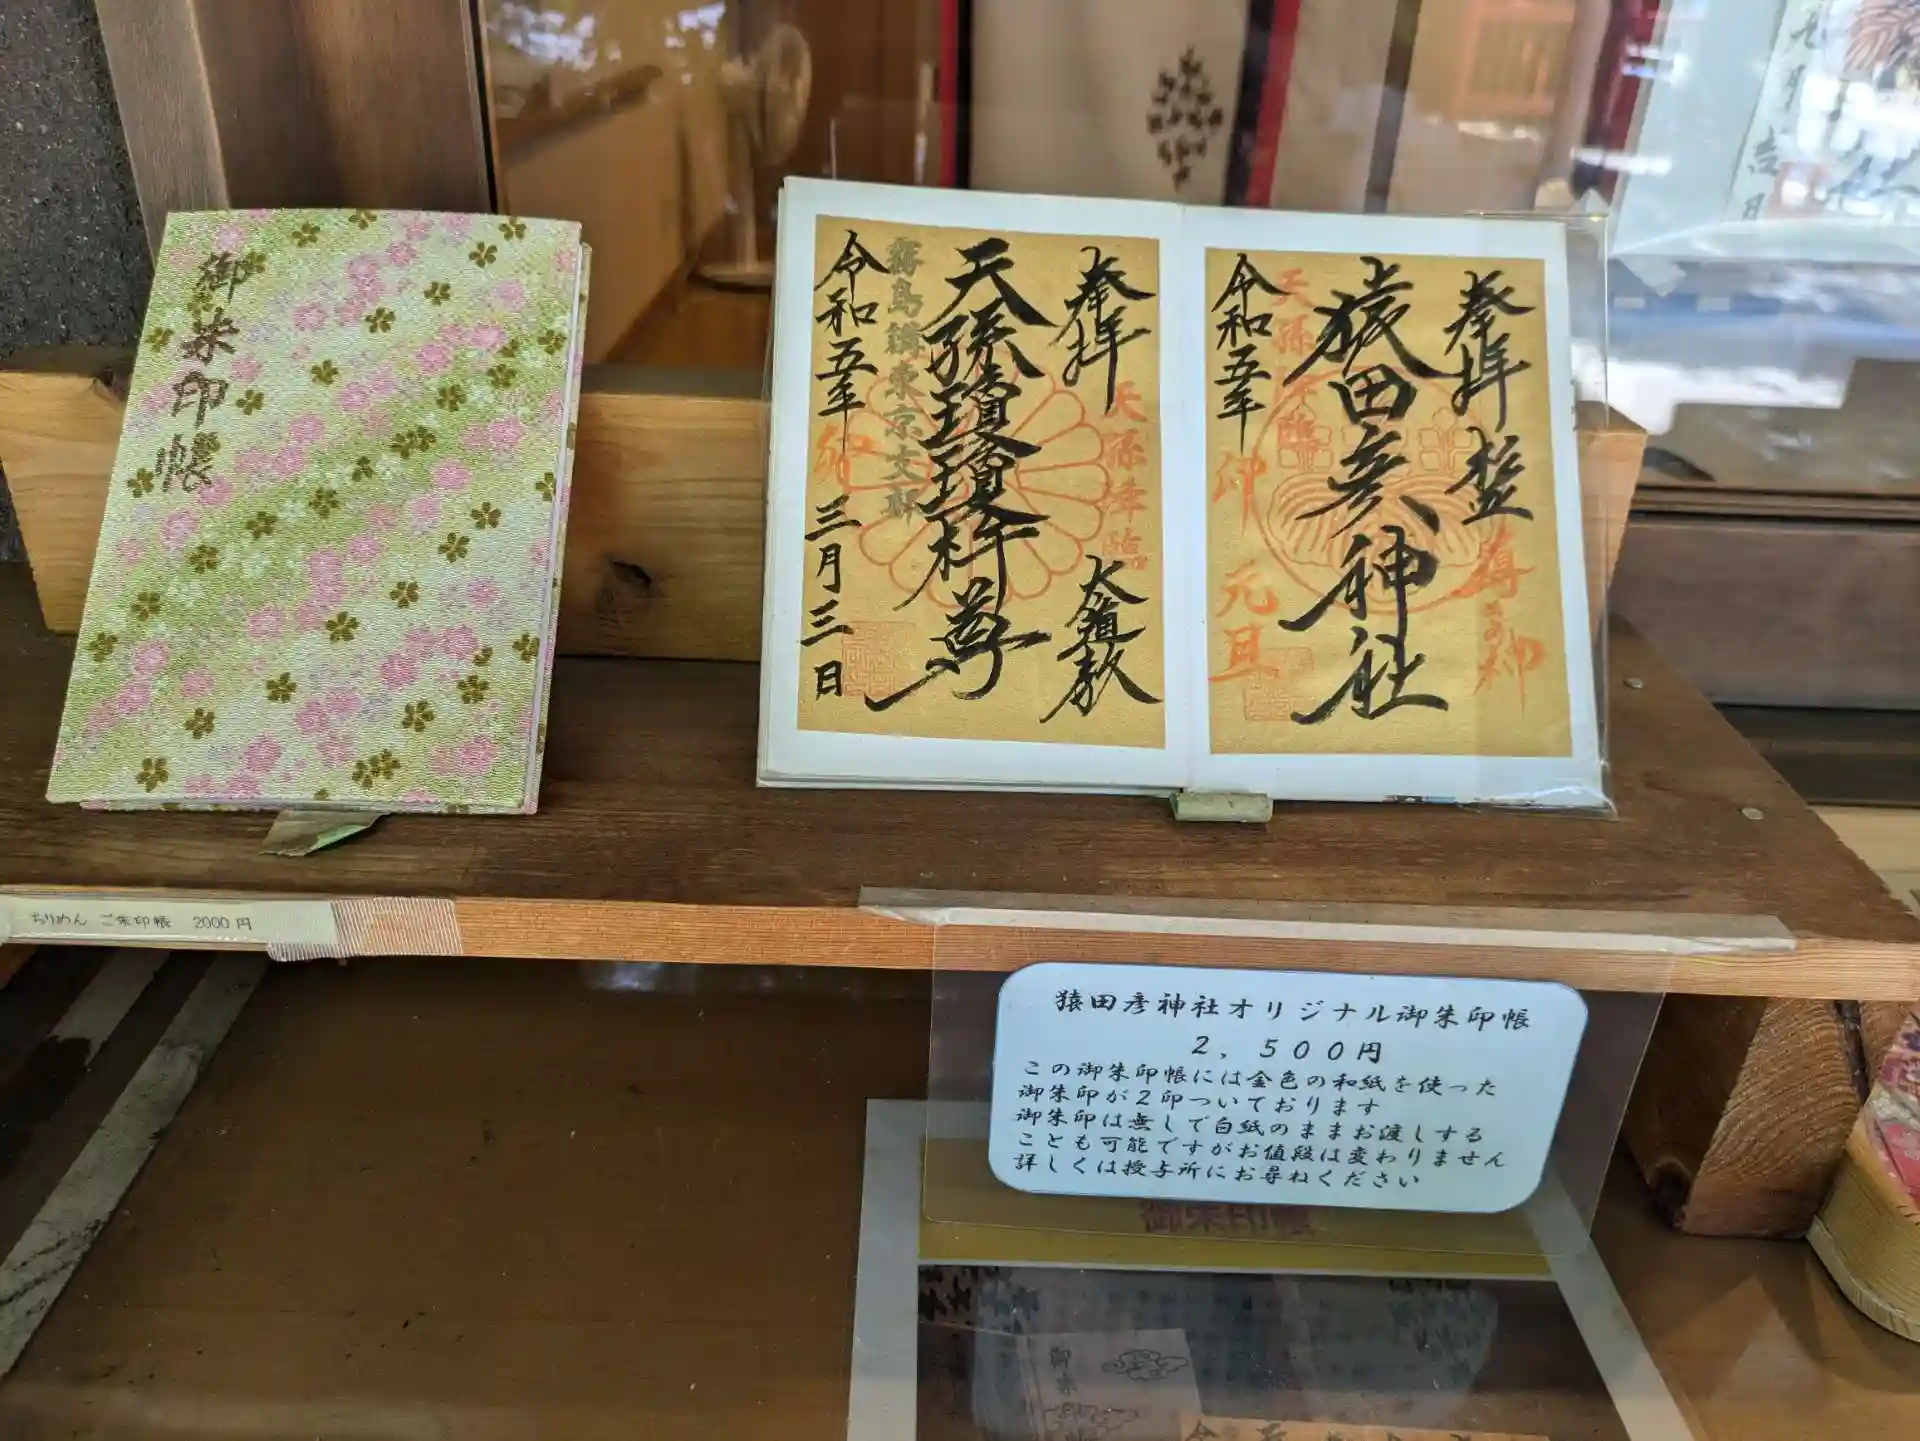 御朱印帳
奉拝
猿田彦神社
天孫降臨
令和五年
卯
元旦
奉拝
天孫降臨
大道教
天孫瓊瓊杵尊
霧島講東京支部
令和五年
卯
三月三日
ちりめん ご朱印帳 2000円
猿田彦神社オリジナル御朱印帳
2,500円
この御朱印帳には金色の和紙を使った
御朱印が2印ついております
御朱印は無しで白紙のままお渡しする
ことも可能ですがお値段は変わりません
詳しくは授与所にお尋ねください
御朱印帳